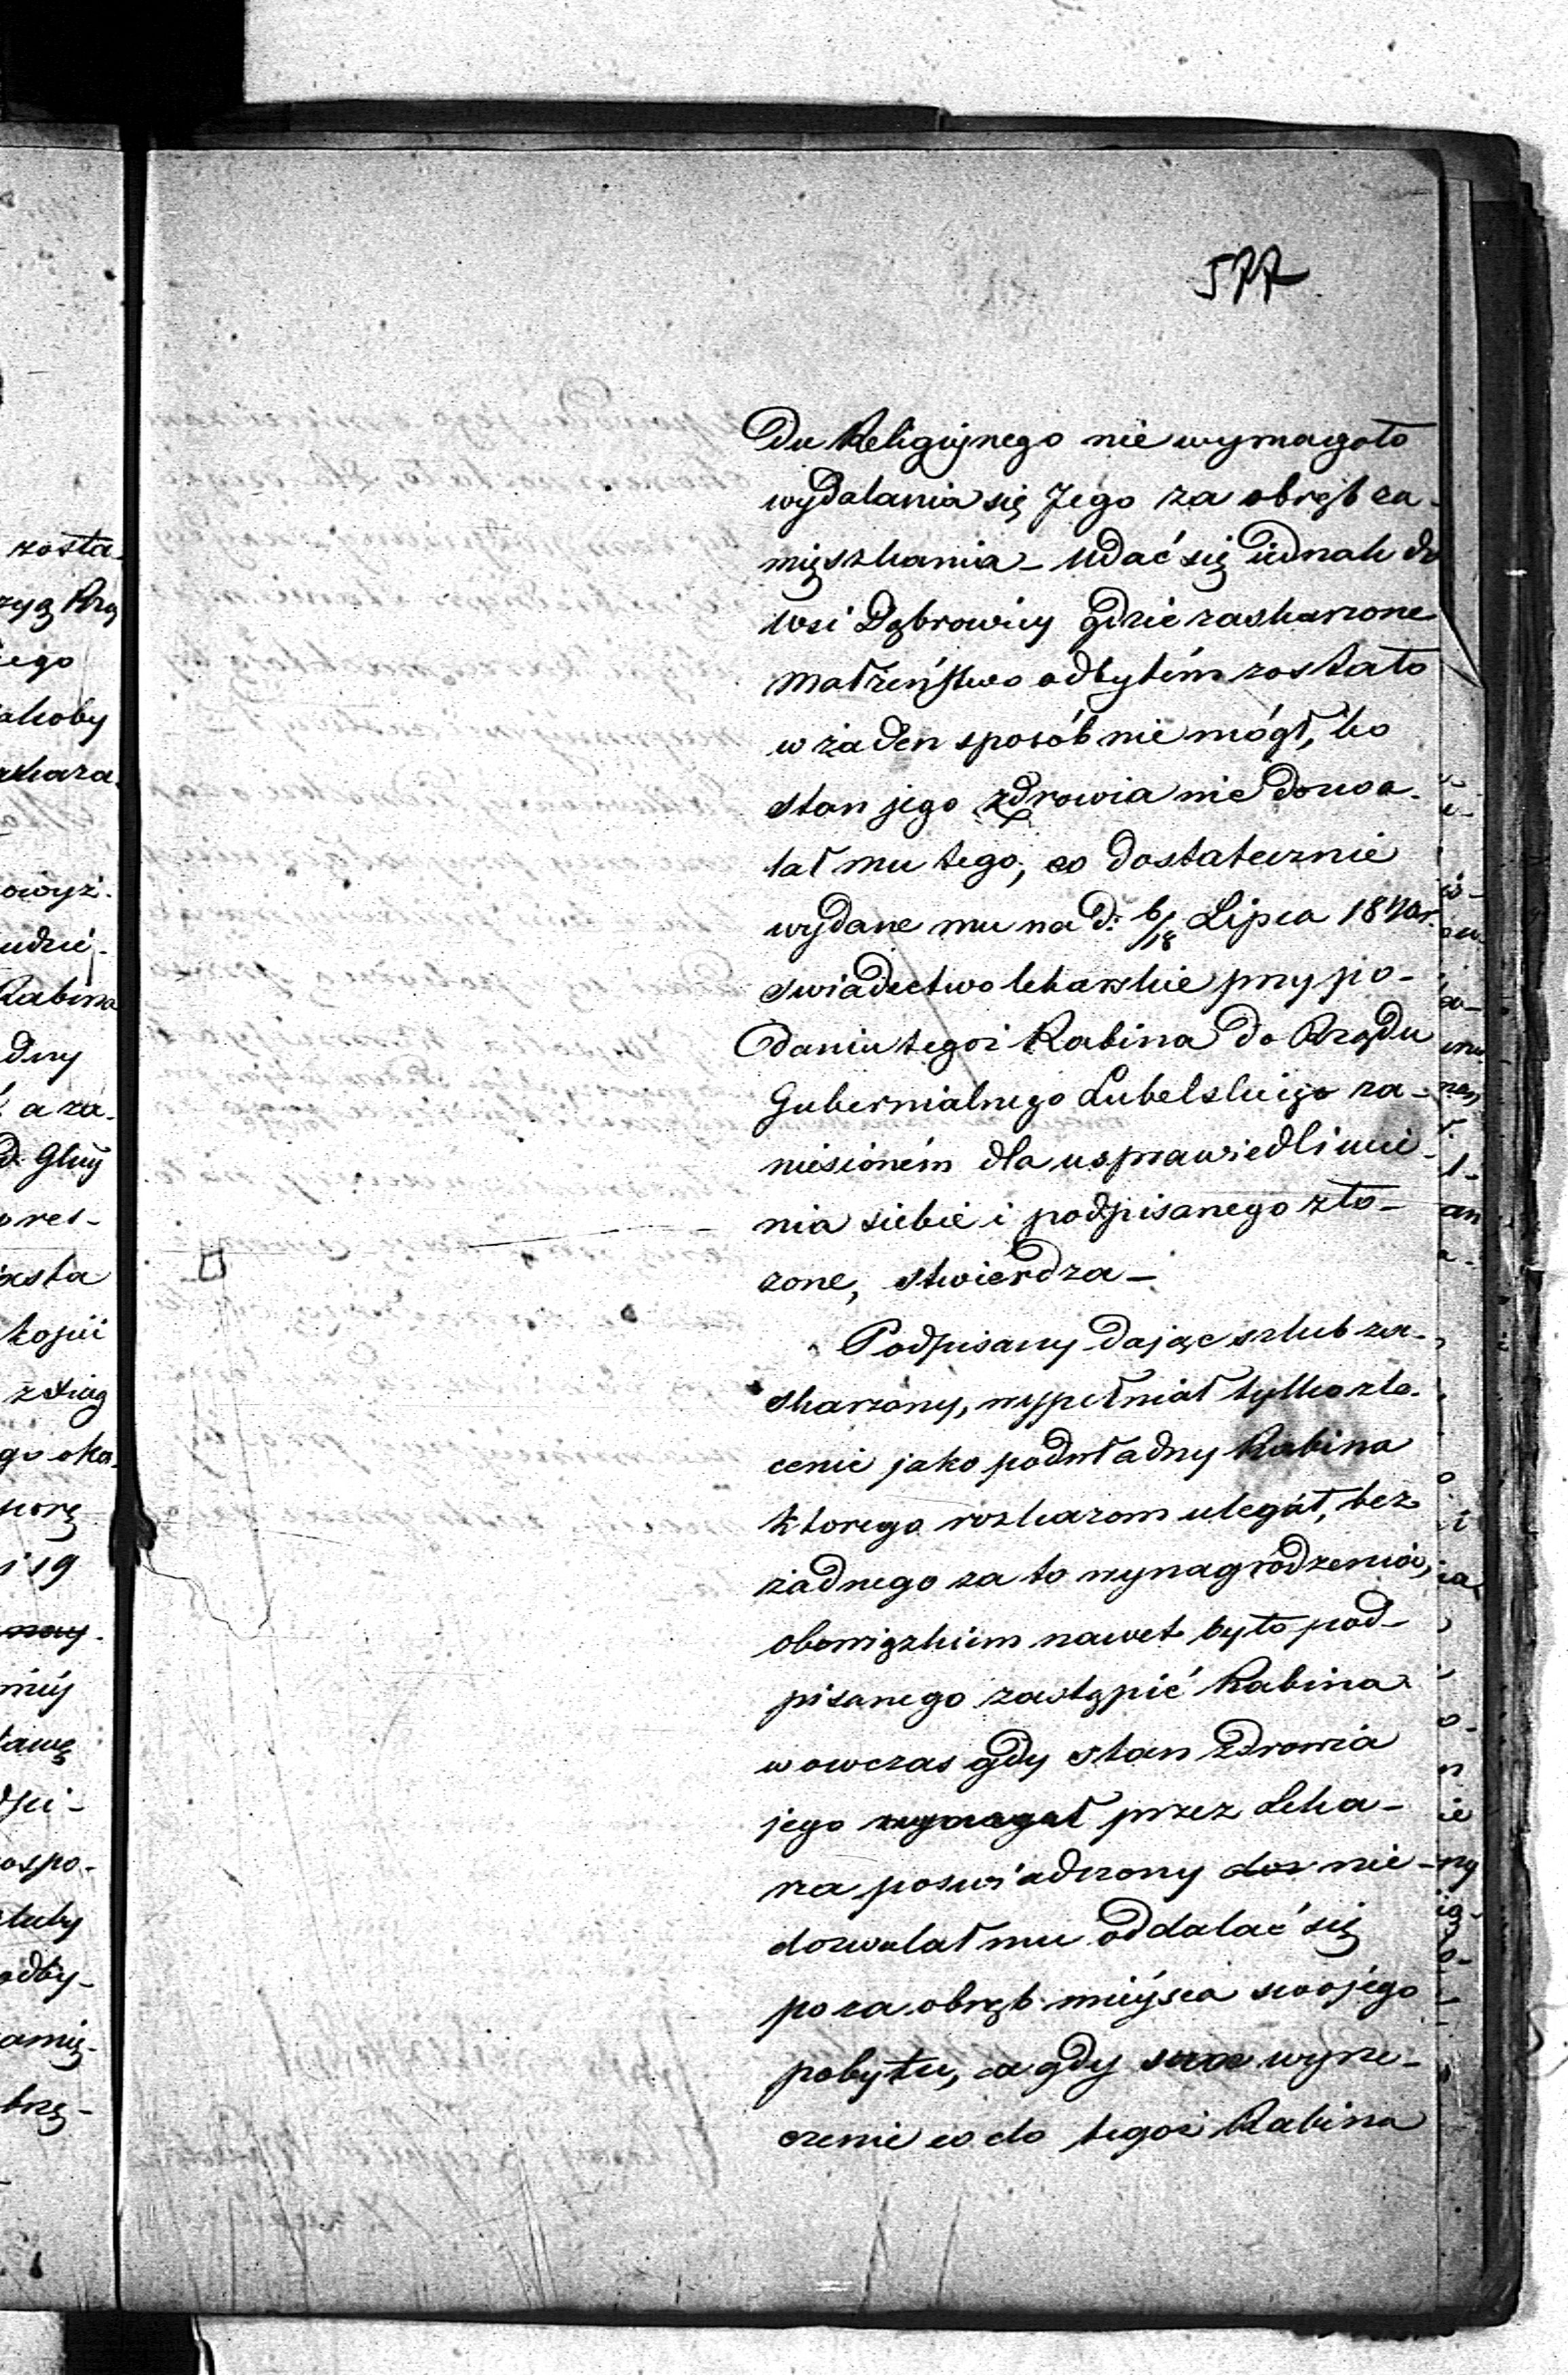 577
du Religijnego nie wymagało
wydalania się Jego za obręb za-
mięszkania – udać się iednak do
wsi Dąbrowicy gdzie zaskarzone
małżeństwo odbytém zostało
w żaden sposób nie mógł, bo
stan jego zdrowia nie dozwa-
lał mu tego, co dostatecznie
wydane mu na d: 6/18 Lipca 1840 r.
swiadectwo lekarskie przy po-
daniu tegoż Rabina do Rządu
Gubernialnego Lubelskiego za-
niesioném dla usprawiedliwie-
nia siebie i podpisanego zło-
zone, stwierdza –
Podpisany dając szlub za-
skarzony, wypełniał tylko zle-
cenie jako podwładny Rabina
ktorego rozkazom ulegał, bez
żadnego za to wynagrodzenia,
obowiązkiem nawet było pod-
pisanego zastąpić Rabina
wowczas gdy stan zdrowia
jego przez Leka-
rza poswiadczony nie
dozwalał mu oddalać się
poza obręb miéysca swojego
pobytu, a gdy wyrze-
czenie co do tegoż Rabina
zosta-
rzyg Prz
iego
akoby
owyż-
udzié-
Rabina
dny
a za-
ores-
iasta
kopii
go oka-
porę
i 19
ospo-
odby-
amię-